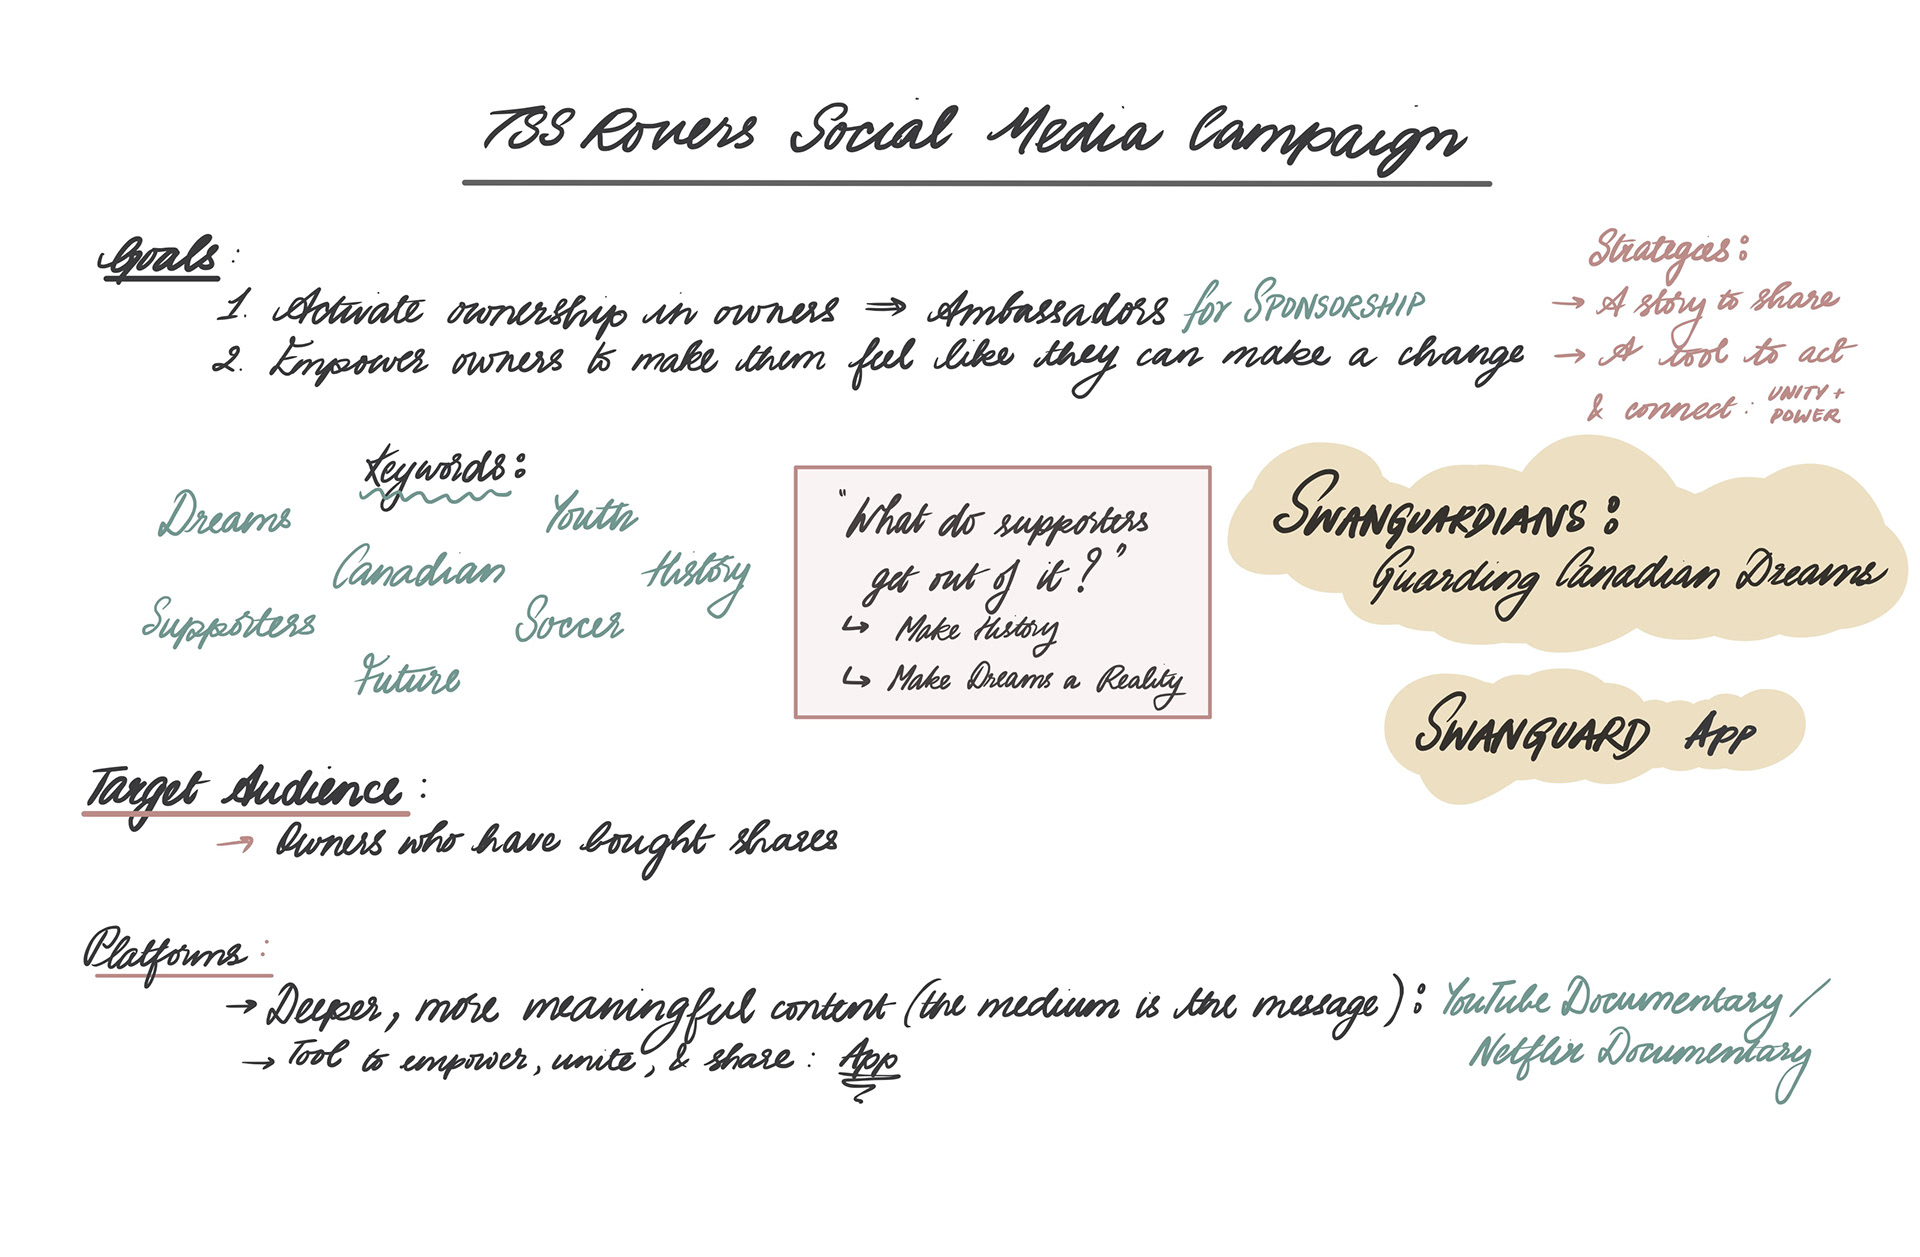 TSS Rovers Social Media Campaign
Goals:
1. Activate ownership in owners ⇒ Ambassadors for SPONSORSHIP
2. Empower owners to make them feel like they can make a change
Strategies:
→ A story to share
→ A tool to act
& connect: UNITY +
POWER
Keywords:
Dreams
Youth
Canadian
History
Supporters
Soccer
Future
"What do supporters
get out of it?"
↳ Make History
↳ Make Dreams a Reality
SWANGUARDIANS:
Guarding Canadian Dreams
SWANGUARD App
Target Audience:
→ Owners who have bought shares
Platforms:
→ Deeper, more meaningful content (the medium is the message): YouTube Documentary /
Netflix Documentary
→ Tool to empower, unite, & share: App